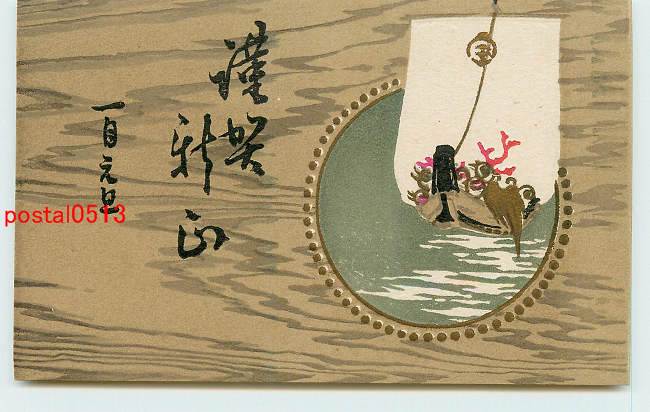 謹賀
新正
一月元旦
宝
postal0513